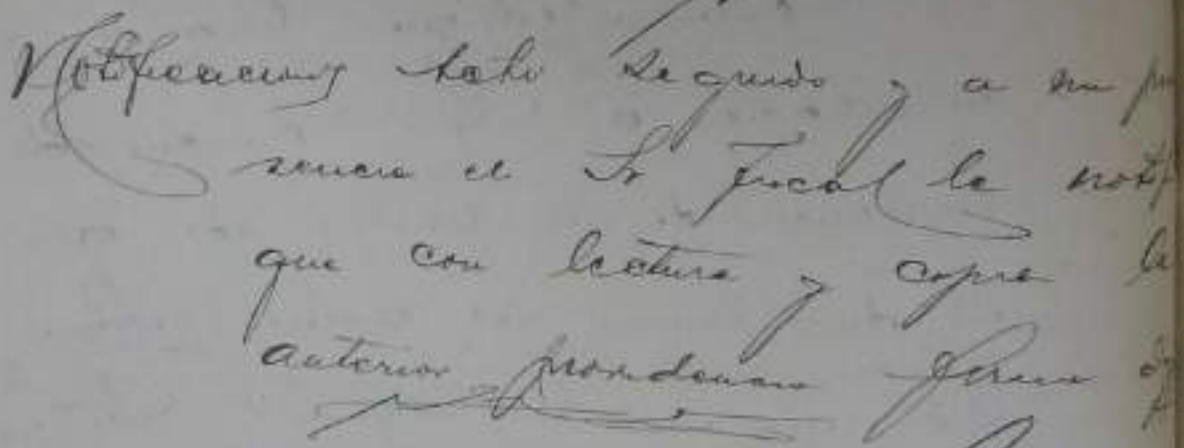 Notificacion Acto seguido y a su pre
sencia el Sr Fiscal le notifi
que con lectura y copia la
anterior providencia firma